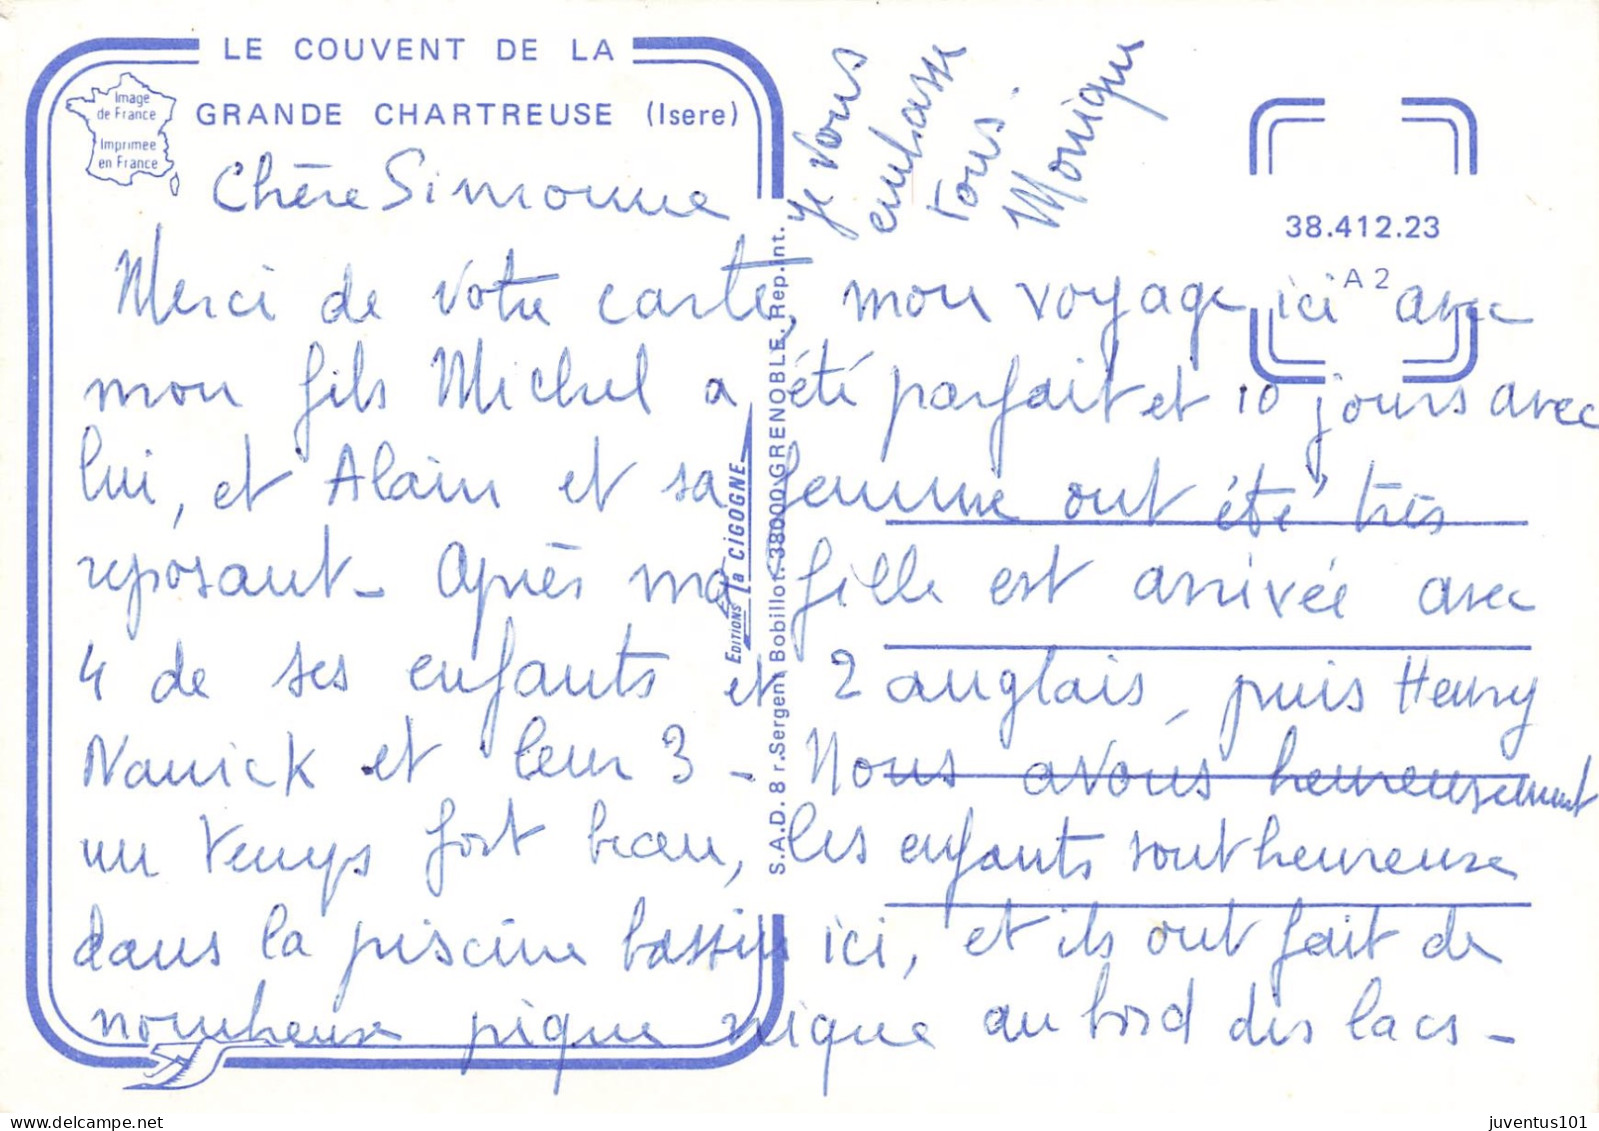 LE COUVENT DE LA
GRANDE CHARTREUSE (Isere)
Image
de France
Imprimee
en France
Chère Simonne
Merci de votre carte, mon voyage ici avec
mon fils Michel a été parfait et 10 jours avec
lui, et Alain et sa femme ont été très
reposant - Après ma fille est arrivée avec
4 de ses enfants et 2 anglais, puis Henry
Nanick et leur 3 - Nous avons heureusement
un temps fort beau, les enfants sont heureuse
dans la piscine bassin ici, et ils ont fait de
nombreuse pique nique au bord des lacs -
je vous
embrasse
tous.
Monique
38.412.23
A 2
EDITIONS la CIGOGNE
S.A.D. 8 r. Sergent Bobillot. 38000 GRENOBLE. Rep. int.
juventus101